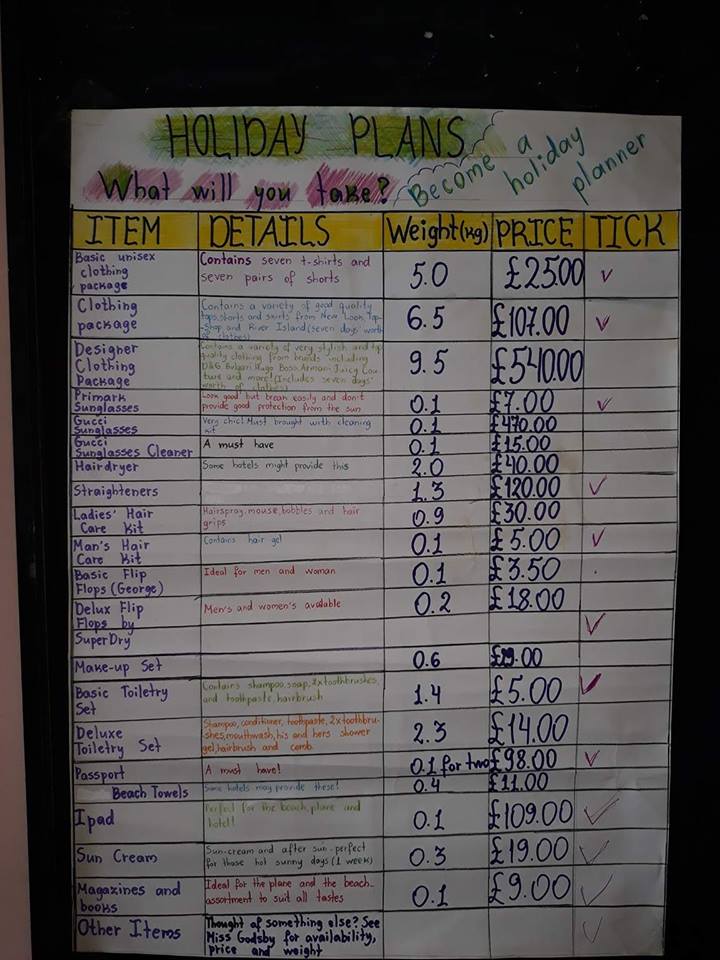 HOLIDAY PLANS
What will you take?
Become a
holiday
planner
ITEM DETAILS Weight(kg) PRICE TICK
Basic unisex
clothing
package
Contains seven t-shirts and
seven pairs of shorts
5.0 £25.00
Clothing
package
Contains a variety of good quality
tops, shorts and skirts from New Look, Top-
Shop and River Island (seven days' worth
of clothes)
6.5 £107.00
Designer
Clothing
Package
Contains a variety of very stylish and top
quality clothing from brands including
D&G, Bvlgari, Hugo Boss, Armani, Juicy Cou-
ture and more! (Includes seven days'
worth of clothes)
9.5 £540.00
Primark
Sunglasses
Look good but break easily and don't
provide good protection from the sun
0.1 £7.00
Gucci
Sunglasses
Very chic! Must brought with cleaning
kit
0.1 £470.00
Gucci
Sunglasses Cleaner
A must have
0.1 £15.00
Hairdryer
Some hotels might provide this
2.0 £40.00
Straighteners
1.3 £120.00
Ladies' Hair
Care Kit
Hairspray, mouse, bobbles and hair
grips
0.9 £30.00
Man's Hair
Care Kit
Contains hair gel
0.1 £5.00
Basic Flip
Flops (George)
Ideal for men and woman
0.1 £3.50
Delux Flip
Flops by
SuperDry
Men's and women's available
0.2 £18.00
Make-up Set
0.6
Basic Toiletry
Set
Contains shampoo, soap, 2x toothbrushes,
and toothpaste, hairbrush
1.4 £5.00
Deluxe
Toiletry Set
Shampoo, conditioner, toothpaste, 2x toothbru-
shes, mouthwash, his and hers shower
gel, hairbrush and comb
2.3 £14.00
Passport
A must have!
0.1 for two £98.00
Beach Towels
Some hotels may provide these!
0.4 £11.00
Ipad
Perfect for the beach, plane and
hotel!
0.1 £109.00
Sun Cream
Sun-cream and after sun-perfect
for those hot sunny days (1 week)
0.3 £19.00
Magazines and
books
Ideal for the plane and the beach-
assortment to suit all tastes
0.1 £9.00
Other Items
Thought of something else? See
Miss Godsby for availability,
price and weight